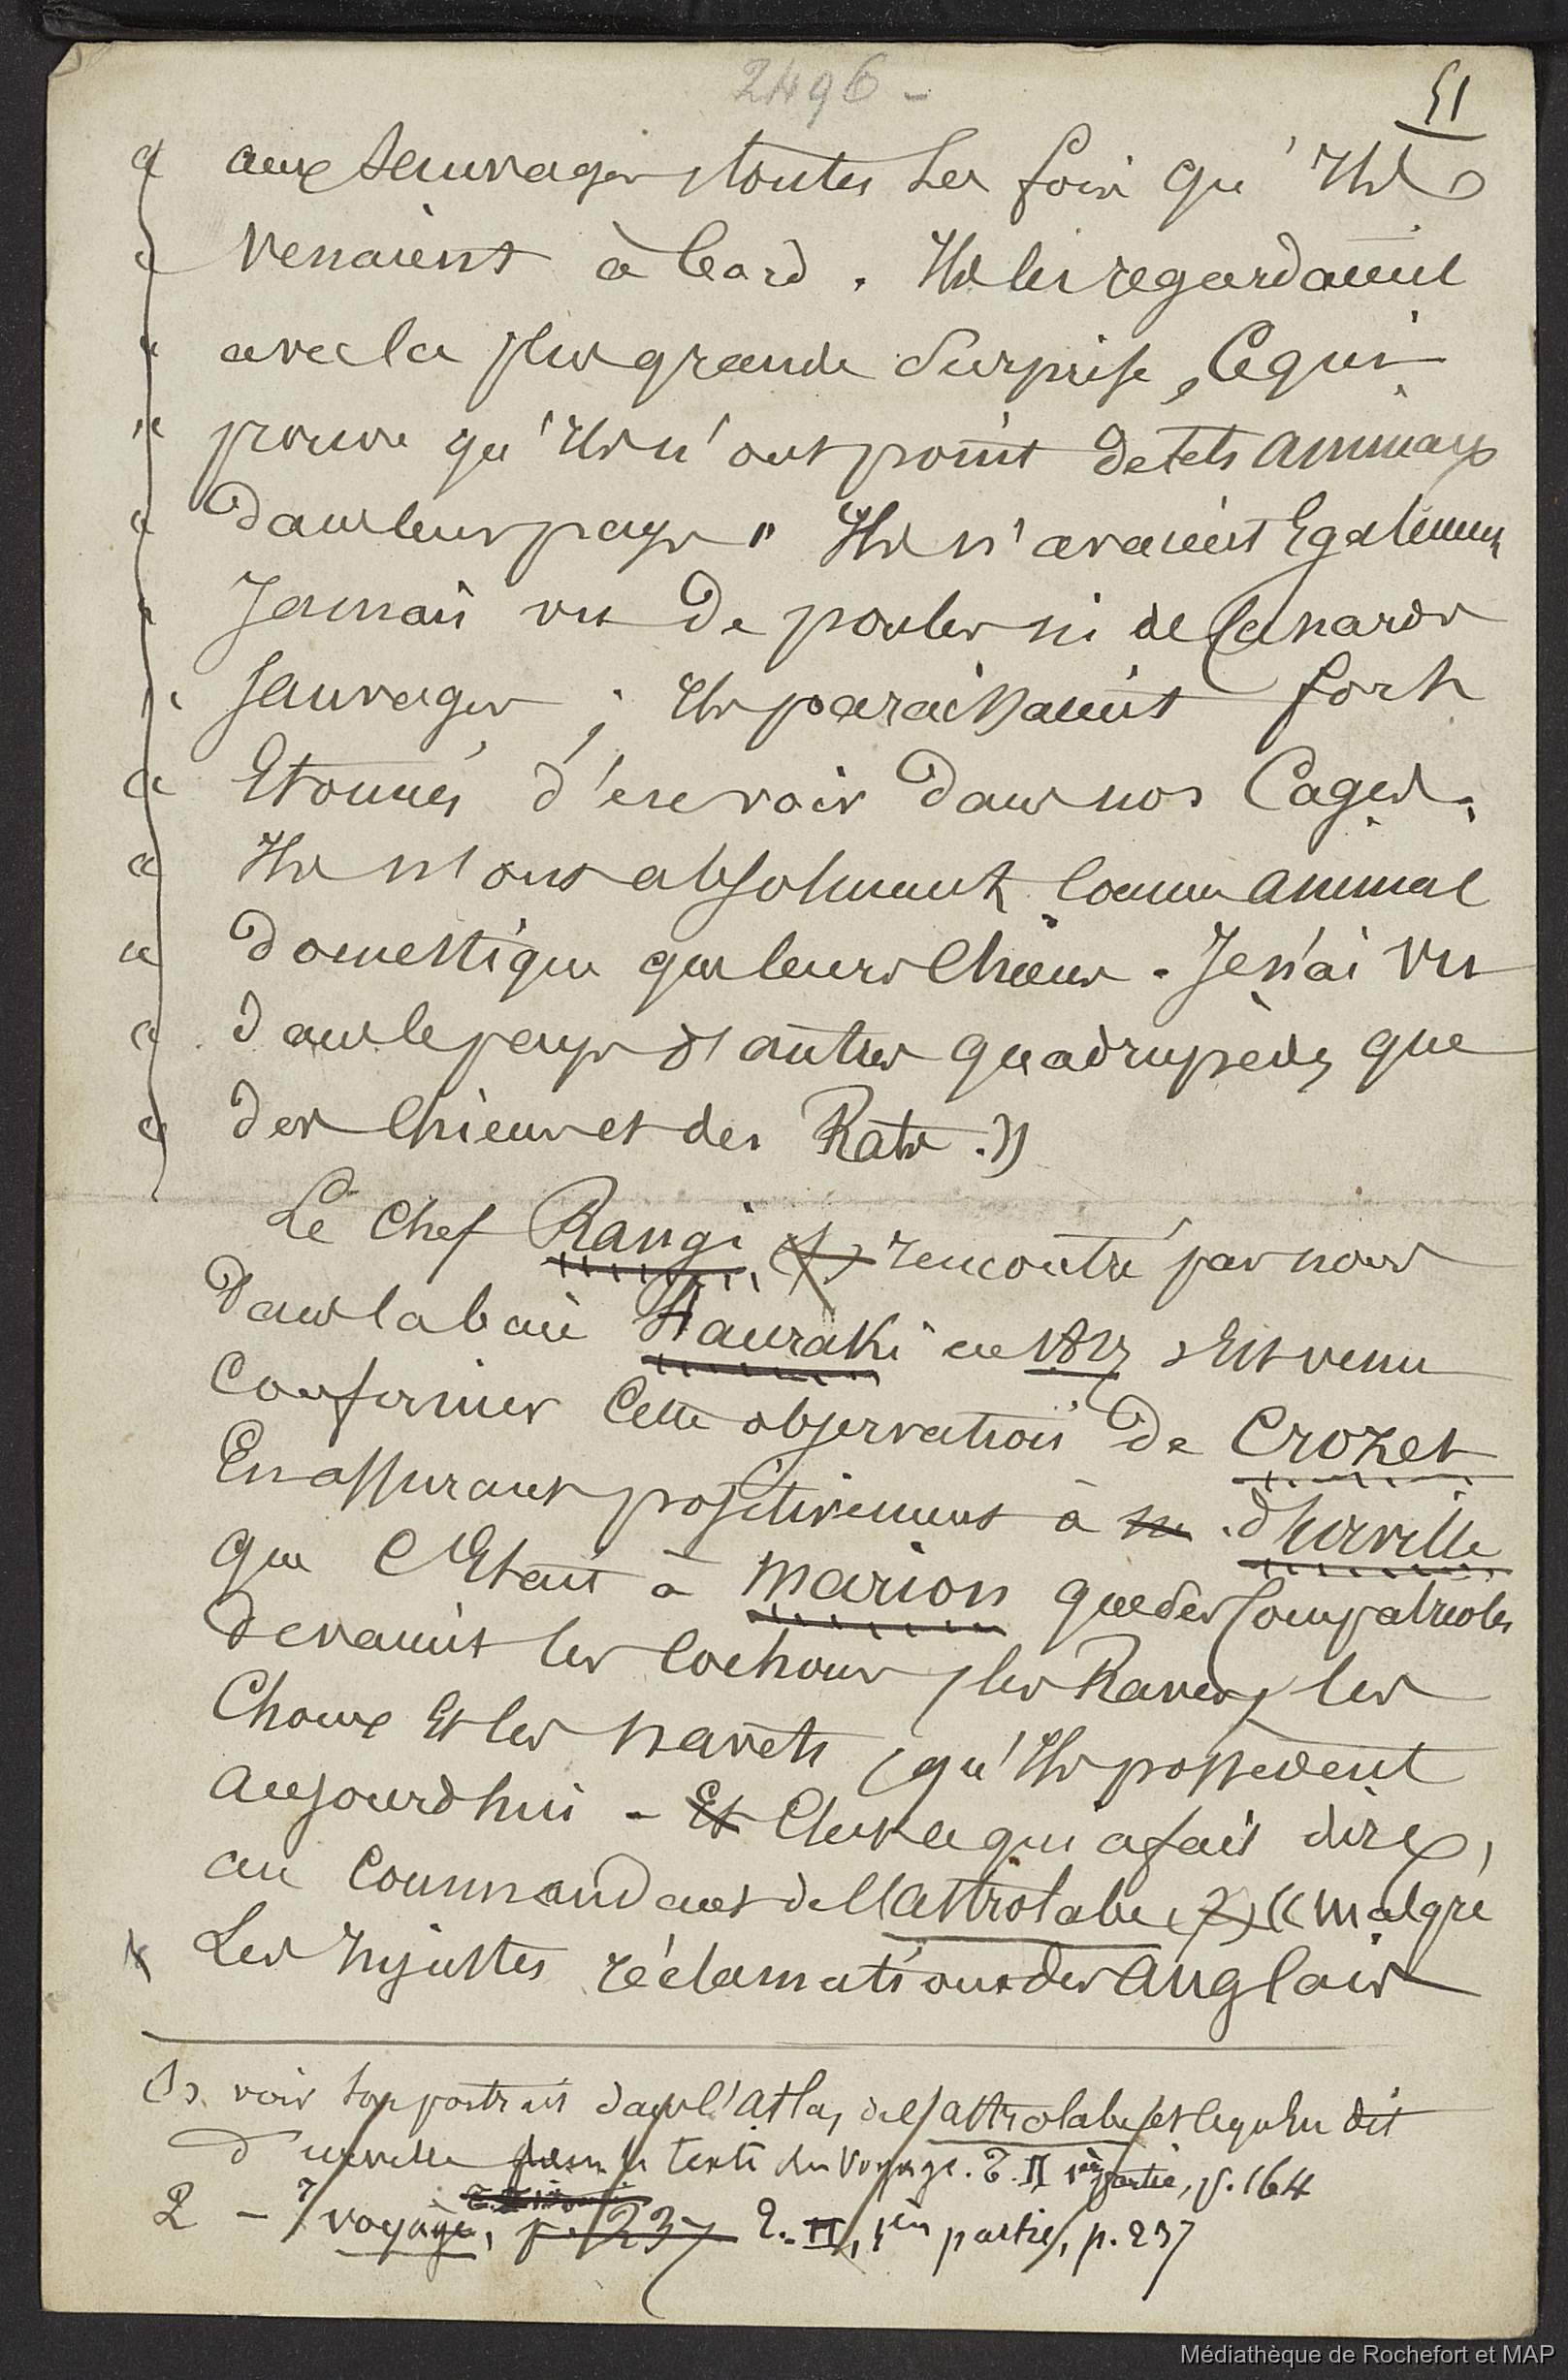 2496 -
51
« aux sauvages toutes les fois qu'Ils
« venaient à bord. Ils les regardaient
« avec la plus grande surprise, Ce qui
« prouve qu'Ils n'ont point de tels animaux
« dans leur pays " Ils n'avaient Egalement
« Jamais vu de poules ni de Canards
« sauvages ; Ils paraissaient fort
« Etonnés d'en voir dans nos Cages.
« Ils n'ont absolument Comme animal
« domestique que leurs Chiens. Je n'ai vu
« dans le pays d'autres quadrupèdes que
« des Chiens et des Rats. »
Le Chef Rangi (1) rencontré par nous
dans la baie Hauraki en 1827, Est venu
Confirmer Cette observation de Crozet
En assurant positivement à M. d'Urville
que C'Etait à Marion que des Compatriotes
devaient les Cochons, les Raves, les
Choux Et les navets, qu'Ils possèdent
aujourd'hui - Et C'est ce qui a fait dire,
au Commandant de l'Astrolabe (2) « malgré
Les Injustes réclamations des anglais
(1) voir son portrait dans l'Atlas de l'astrolabe et ce qu'En dit
d'urville dans le texte du Voyage. T. II 1ère partie, p. 164
2 - voyage, p. 237 T. II, 1ère partie, p. 237
Médiathèque de Rochefort et MAP